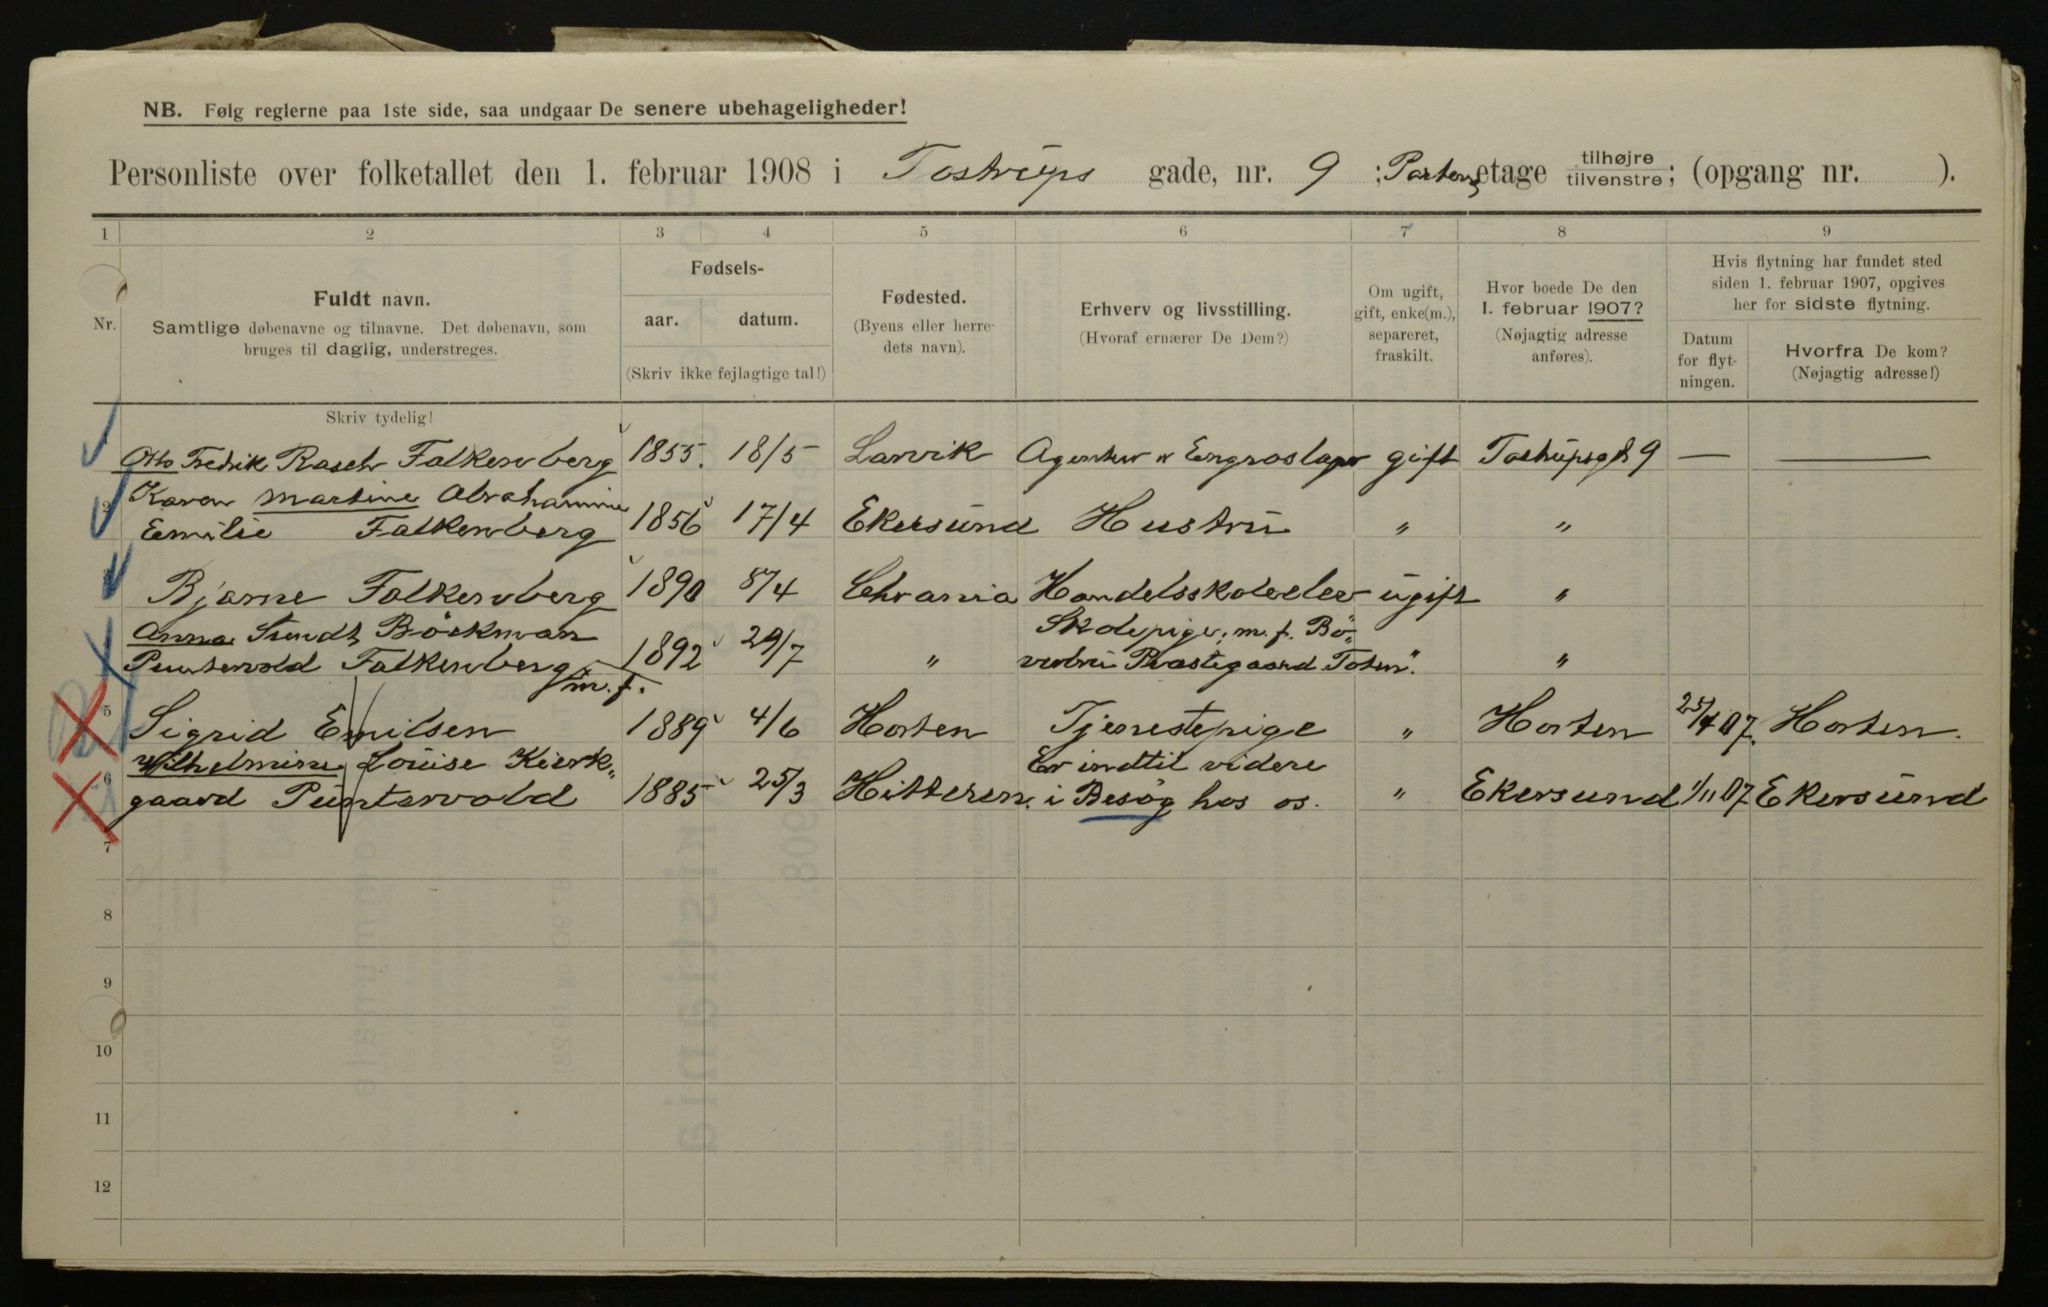 NB. Følg reglerne paa 1ste side, saa undgaar De senere ubehageligheder!
Personliste over folketallet den 1. februar 1908 i Tostrups gade, nr. 9 ; etage tilhøjre tilvenstre; (opgang nr. ).
1 2 3 4 5 6 7 8 9
Nr.
Fuldt navn.
Samtlige døbenavne og tilnavne. Det døbenavn, som
bruges til daglig, understreges.
Fødsels-
aar. datum.
(Skriv ikke fejlagtige tal!)
Fødested.
(Byens eller herre-
dets navn).
Erhverv og livsstilling.
(Hvoraf ernærer De Dem?)
Om ugift,
gift, enke(m.),
separeret,
fraskilt.
Hvor boede De den
1. februar 1907?
(Nøjagtig adresse
anføres).
Hvis flytning har fundet sted
siden 1. februar 1907, opgives
her for sidste flytning.
Datum
for flyt-
ningen.
Hvorfra De kom?
(Nøjagtig adresse!)
Skriv tydelig!
Otto Fredrik Rasch Falkenberg 1855. 18/5 Larvik Agentur & gift Tostrupsgt 9 — —
Karen Martine Abrahamine
2 Emilie Falkenberg 1856 17/4 Ekersund Hustru " "
Bjarne Falkenberg 1890 5/4 Chrania Handelsskoleelev ugift "
Anna Sundt Böckman Skolepige, m. f. Bö
Puntervold Falkenberg m. f. 1892 29/7 " Præstegaard Toten ". "
5 Sigrid Emilsen 1889 4/6 Horten Tjenestepige " Horten 25/4 07. Horten.
Wilhelmine Louise Kierk„ Er indtil videre
6 gaard Puntervold 1885 25/3 Hitteren. i Besøg hos os. " Ekersund 1/11 07 Ekersund
7
8
9
10
11
12